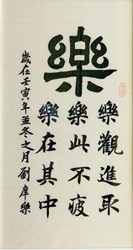 樂
樂觀進取
樂此不疲
樂在其中
歲在壬寅年孟冬之月劉